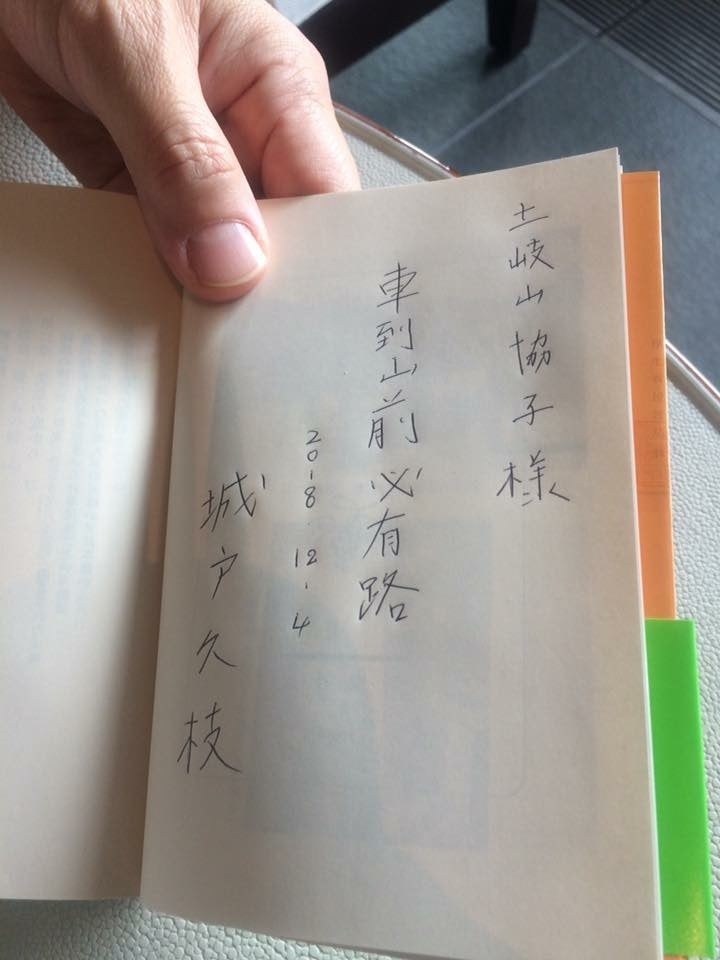 土岐山協子様
車到山前必有路
2018.12.4
城戸久枝